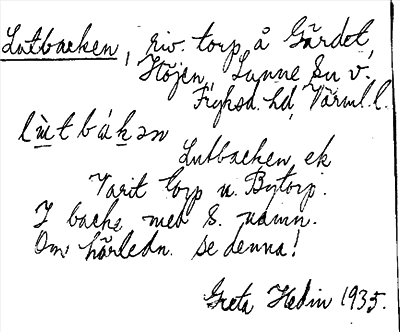 Lutbacken, riv. torp å Gärdet,
Höjen, Sunne Su v.,
Fryksd. hd, Värml. l.
lùtbákən
Lutbacken, ek
Varit torp u. Bytorp.
I backe med s. namn.
Om härledn. se denna!
Greta Hedin 1935.